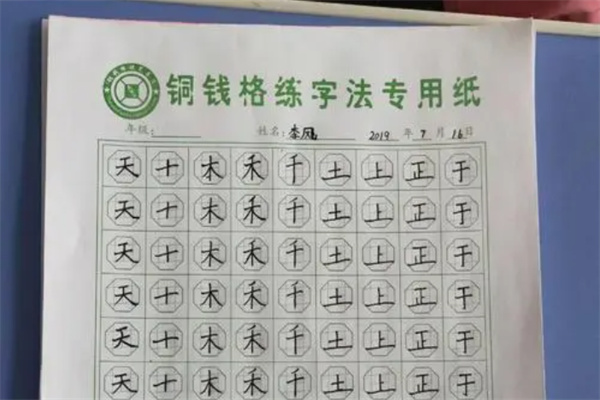 铜钱格练字法专用纸
年级: 姓名: 李凤 2019 年 7 月 16 日
天 十 木 禾 千 土 上 正 于
天 十 木 禾 千 土 上 正 于
天 十 木 禾 千 土 上 正 于
天 十 木 禾 千 土 上 正 于
天 十 木 禾 千 土 上 正 于
天 十 木 禾 千 土 上 正 于